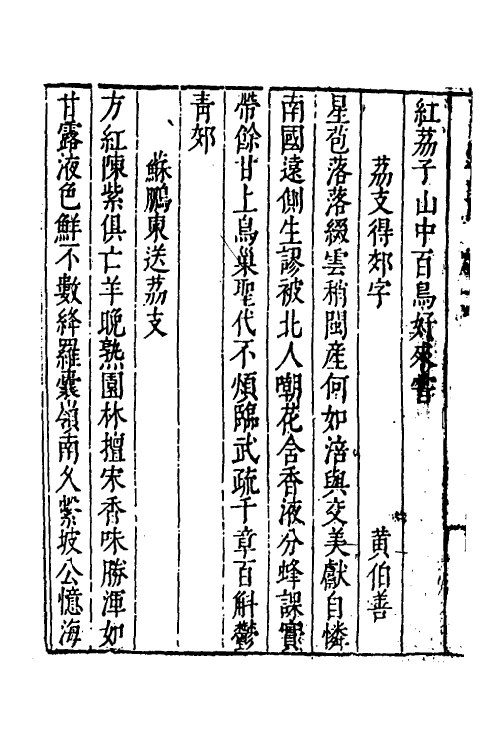 紅荔子山中百鳥好來
荔支得郊字
黄伯善
星苞落落綴雲稍閩産何如涪與交美獻自憐
南國遠側生謬被北人嘲花含香液分蜂課實
帶餘甘上鳥巢聖代不煩臨武疏千章百斛鬱
青郊
蘇鵬東送荔支
方紅陳紫俱亡羊晚熟園林擅宋香味勝渾如
甘露液色鮮不數絳羅囊嶺南久繁坡公憶海